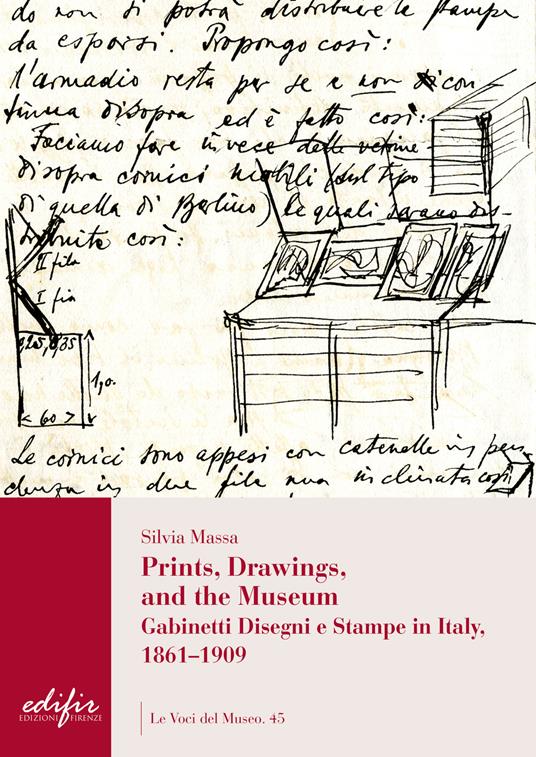 do non si potrà distribuire le stampe
da esporsi. Propongo così:
l'armadio resta per se e non si con-
tinua disopra ed è fatto così:
Facciamo fare invece delle vetrine
disopra cornici mobili (sul tipo
di quella di Berlino) le quali saranno dis-
tribuite così:
II fila
I fila
0,35
1,0.
< 60 >
Le cornici sono appesi con catenelle in pen-
denza in due file una inclinata così
Silvia Massa
Prints, Drawings,
and the Museum
Gabinetti Disegni e Stampe in Italy,
1861–1909
edifir
EDIZIONI FIRENZE
Le Voci del Museo. 45